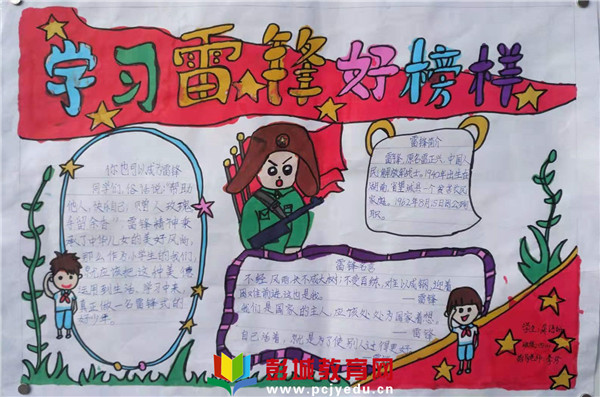 学习雷锋好榜样
你也可以成为雷锋
同学们,俗话说:"帮助
他人,快乐自己""赠人玫瑰,
手留余香"雷锋精神来
承了中华儿女的美好风尚,
那么作为小学生的我们,
就应该把这种美德
运用到生活、学习中来,
真正做一名雷锋式的
好少年。
雷锋简介
雷锋,原名雷正兴,中国人
民解放军战士。1940年出生在
湖南省望城县一个贫苦农民
家庭。1962年8月15日因公殉
职。
雷锋名言
不经风雨,长不成大树,不受百炼,难以成钢,迎着
困难前进,这也是我
——雷锋
我们是国家的主人,应该处处为国家着想。
——雷锋
自己活着,就是为了使别人过得更好
学生:
彭城教育网
www.pcjyedu.cn